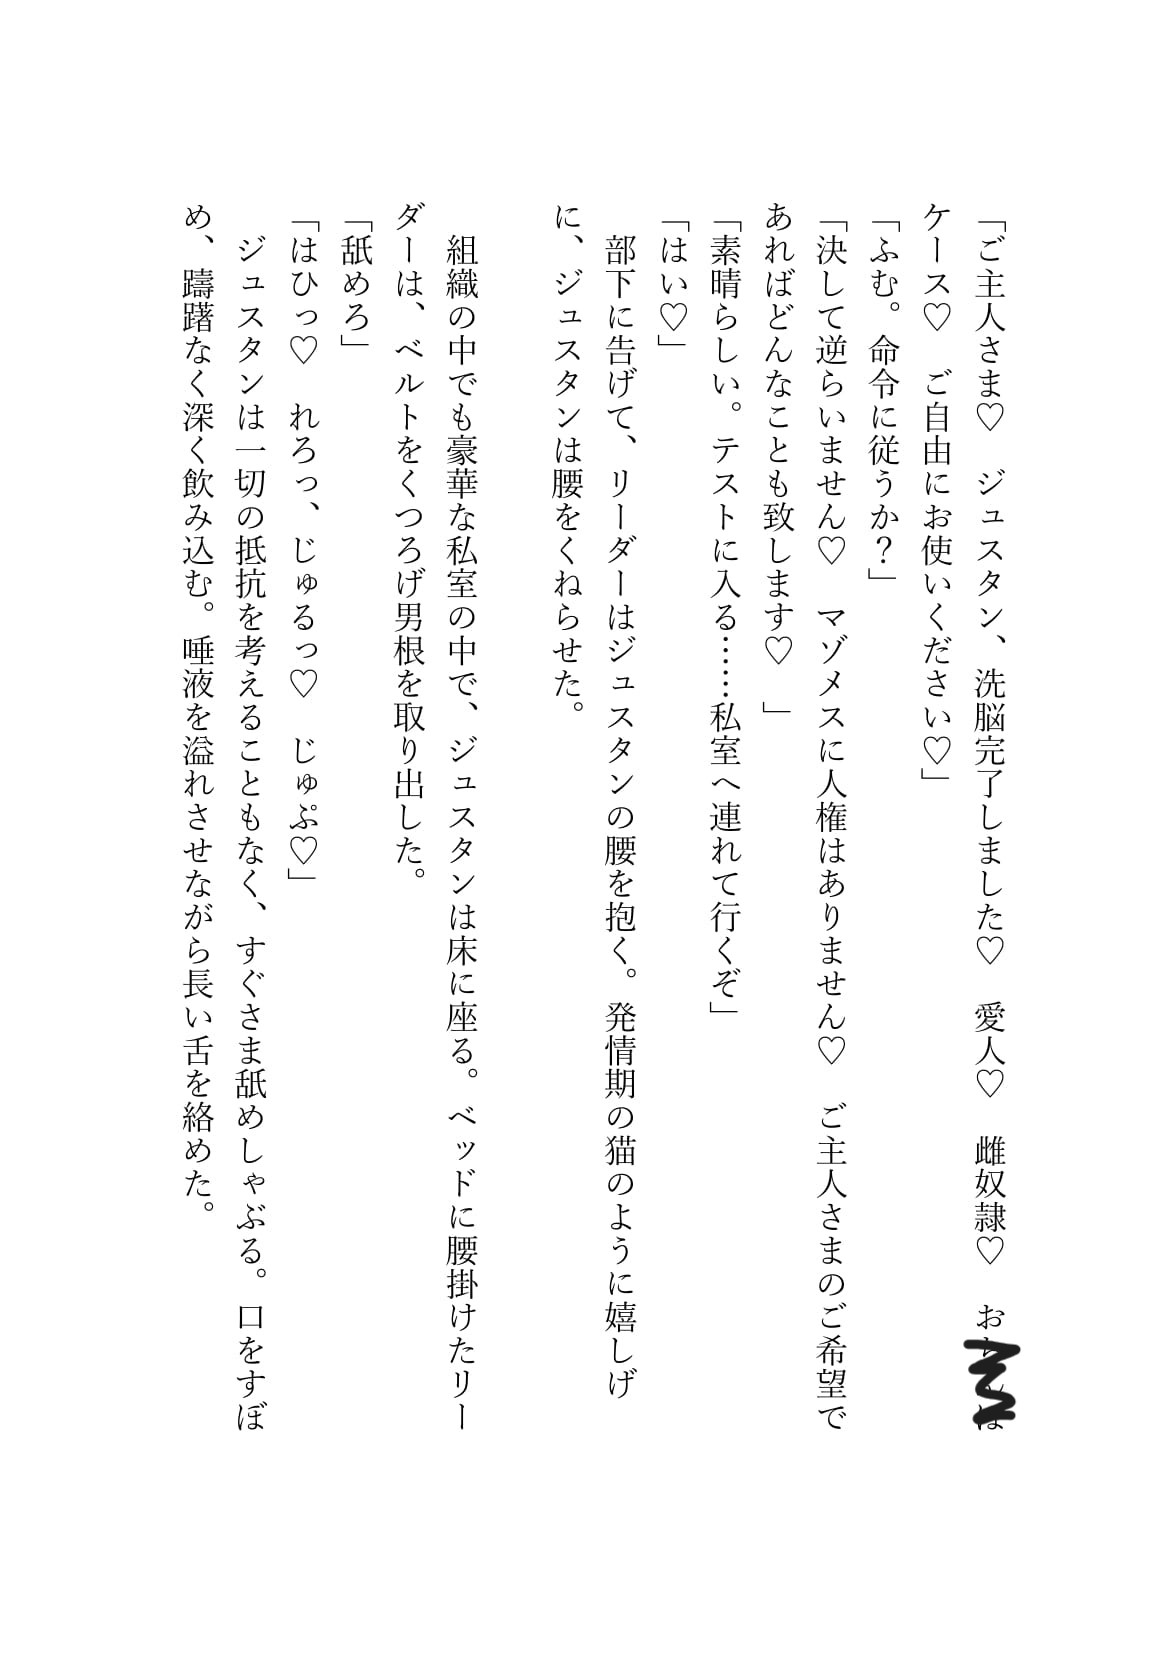 「ご主人さま♡　ジュスタン、洗脳完了しました♡　愛人♡　雌奴隷♡　お
ケース♡　ご自由にお使いください♡」
「ふむ。命令に従うか？」
「決して逆らいません♡　マゾメスに人権はありません♡　ご主人さまのご希望で
あればどんなことも致します♡　」
「素晴らしい。テストに入る……私室へ連れて行くぞ」
「はい♡」
　部下に告げて、リーダーはジュスタンの腰を抱く。発情期の猫のように嬉しげ
に、ジュスタンは腰をくねらせた。
　組織の中でも豪華な私室の中で、ジュスタンは床に座る。ベッドに腰掛けたリー
ダーは、ベルトをくつろげ男根を取り出した。
「舐めろ」
「はひっ♡　れろっ、じゅるっ♡　じゅぷ♡」
　ジュスタンは一切の抵抗を考えることもなく、すぐさま舐めしゃぶる。口をすぼ
め、躊躇なく深く飲み込む。唾液を溢れさせながら長い舌を絡めた。